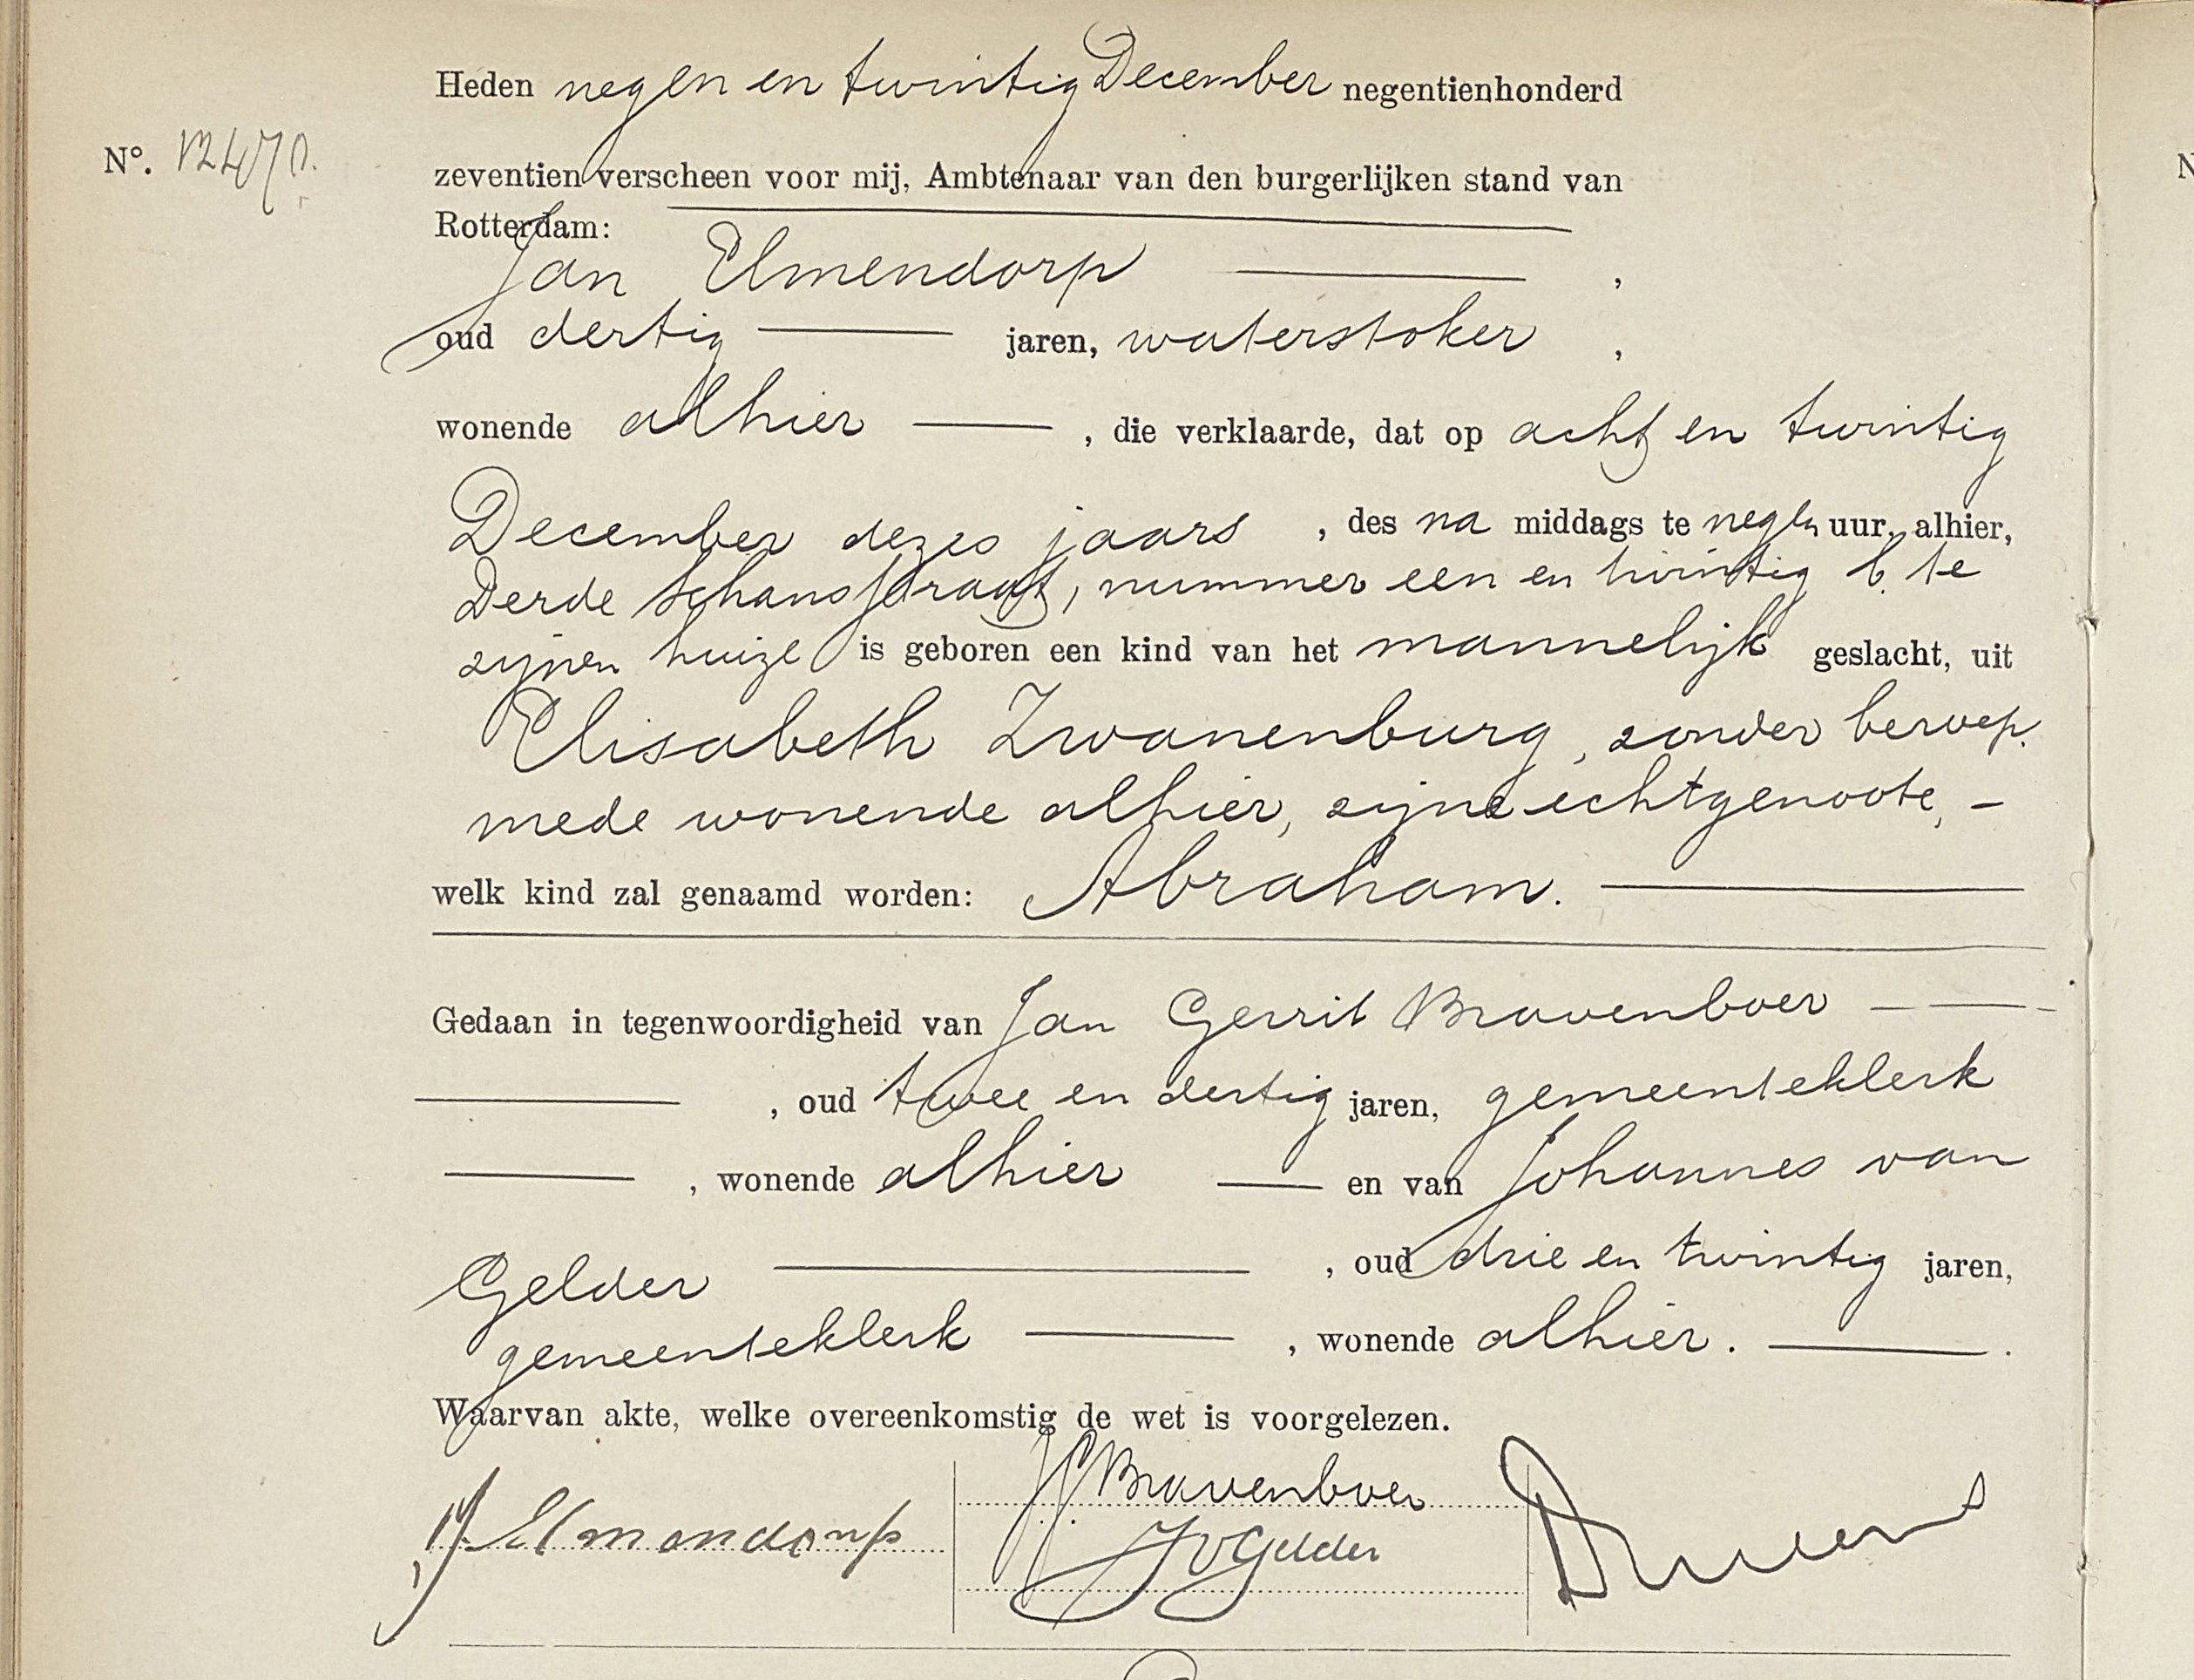 Heden negen en twintig December negentienhonderd
Nº. 12470.
zeventien verscheen voor mij, Ambtenaar van den burgerlijken stand van
Rotterdam:
Jan Elmendorp ,
oud dertig jaren, waterstoker ,
wonende alhier , die verklaarde, dat op acht en twintig
December dezes jaars , des na middags te negen uur, alhier,
Derde Schansstraat, nummer een en twintig b, te
zijnen huize is geboren een kind van het mannelijk geslacht, uit
Elisabeth Zwanenburg, zonder beroep,
mede wonende alhier, zijne echtgenoote, –
welk kind zal genaamd worden: Abraham.
Gedaan in tegenwoordigheid van Jan Gerrit Bravenboer
, oud twee en dertig jaren, gemeenteklerk
, wonende alhier en van Johannes van
Gelder , oud drie en twintig jaren,
gemeenteklerk , wonende alhier.
Waarvan akte, welke overeenkomstig de wet is voorgelezen.
J. Elmendorp
JG Bravenboer
JvGelder
N